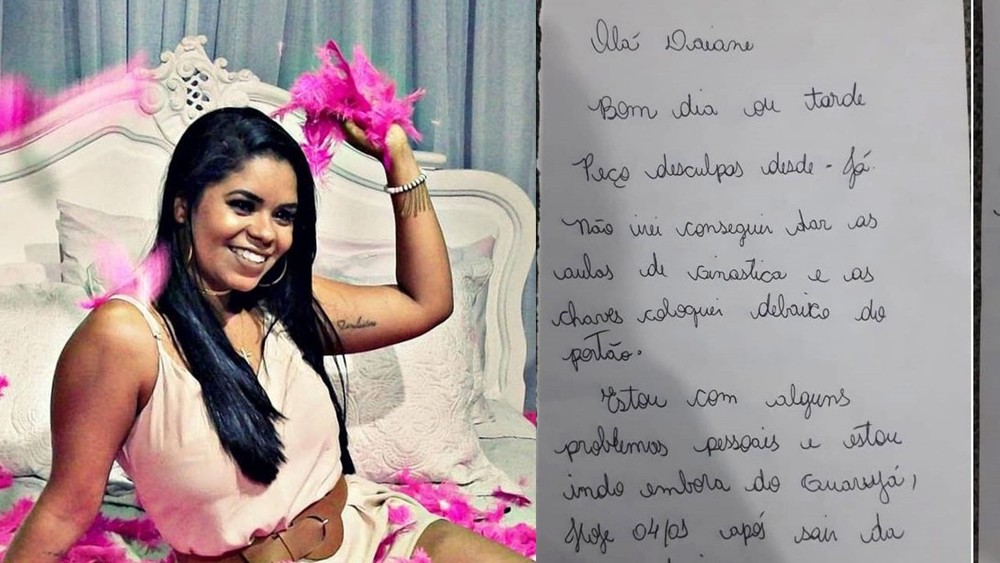 Olá Daiane
Bom dia ou tarde
Peço desculpas desde-já.
Não irei conseguir dar as
aulas de Ginastica e as
chaves coloquei debaixo do
portão.
Estou com alguns
problemas pessoais e estou
indo embora do Guarujá,
Hoje 04/05 após sair da